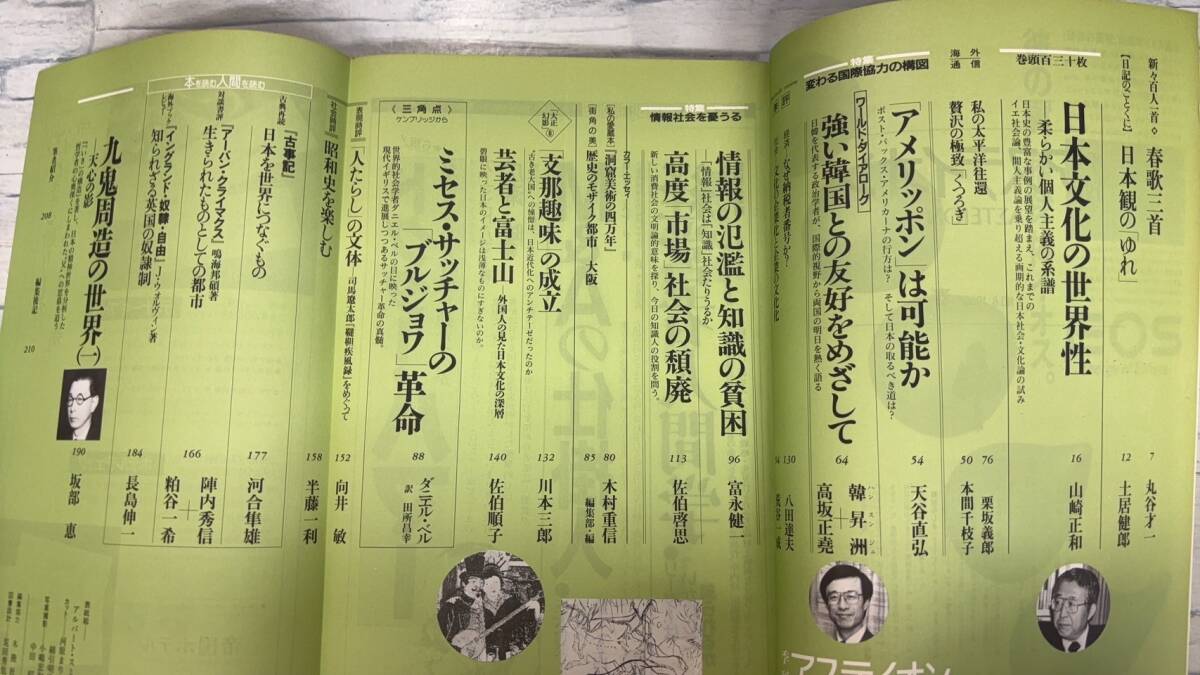 新々百人一首◇
春歌三首
7
丸谷才一
【日記のごとくに】
日本観の「ゆれ」
12
土居健郎
巻頭百三十枚
日本文化の世界性
柔らかい個人主義の系譜
日本史の豊富な事例の展望を踏まえ、これまでの
イエ社会論、間人主義論を乗り超える画期的な日本社会・文化論の試み
16
山崎正和
海外通信
私の太平洋往還
76
栗坂義郎
贅沢の極致「くつろぎ」
50
本間千枝子
特集
変わる国際協力の構図
「アメリッポン」は可能か
ポスト・パックス・アメリカーナの行方は? そして日本の取るべき道は?
54
天谷直弘
ワールドダイアローグ
強い韓国との友好をめざして
日韓を代表する政治学者が、国際的視野から両国の明日を熱く語る
64
韓昇洲
ハン スン ジュ
+
高坂正堯
なぜ納税者番号か?
130
八田達夫
特集
情報社会を憂うる
情報の氾濫と知識の貧困
「情報」社会は「知識」社会たりうるか
96
富永健一
高度「市場」社会の頽廃
新しい消費社会の文明論的意味を探り、今日の知識人の役割を問う。
113
佐伯啓思
カラーエッセイ
【私の愛蔵本】
「洞窟美術の四万年」
80
木村重信
【街角の美】
歴史のモザイク都市―大阪
85
編集部・編
大正幻影⑧
「支那趣味」の成立
“古き老大国”への憧憬は、日本近代化へのアンチテーゼだったのか
132
川本三郎
芸者と富士山
外国人の見た日本文化の深層
碧眼に映った日本のイメージは浅薄なものにすぎないのか。
140
佐伯順子
〈三角点〉
ケンブリッジから
ミセス・サッチャーの
「ブルジョワ」革命
世界的社会学者ダニエル・ベルの目に映った
現代イギリスで進展しつつあるサッチャー革命の真髄。
88
ダニエル・ベル
訳 田所昌幸
表現時評
「人たらし」の文体
司馬遼太郎『韃靼疾風録』をめぐって
152
向井 敏
社会時評
『昭和史を楽しむ
158
半藤一利
本を読む人間を読む
古典再読
『古事記』
日本を世界につなぐもの
177
河合隼雄
対談書評
『アーバン・クライマクス』鳴海邦碩著
生きられたものとしての都市
166
陣内秀信
+
粕谷一希
『イングランド・奴隷・自由』J・ウォルヴィン著
知られざる英国の奴隷制
184
長島伸一
九鬼周造の世界(一)
天心の影
190
坂部 恵
執筆者紹介
208
編集後記
210
アステイオン